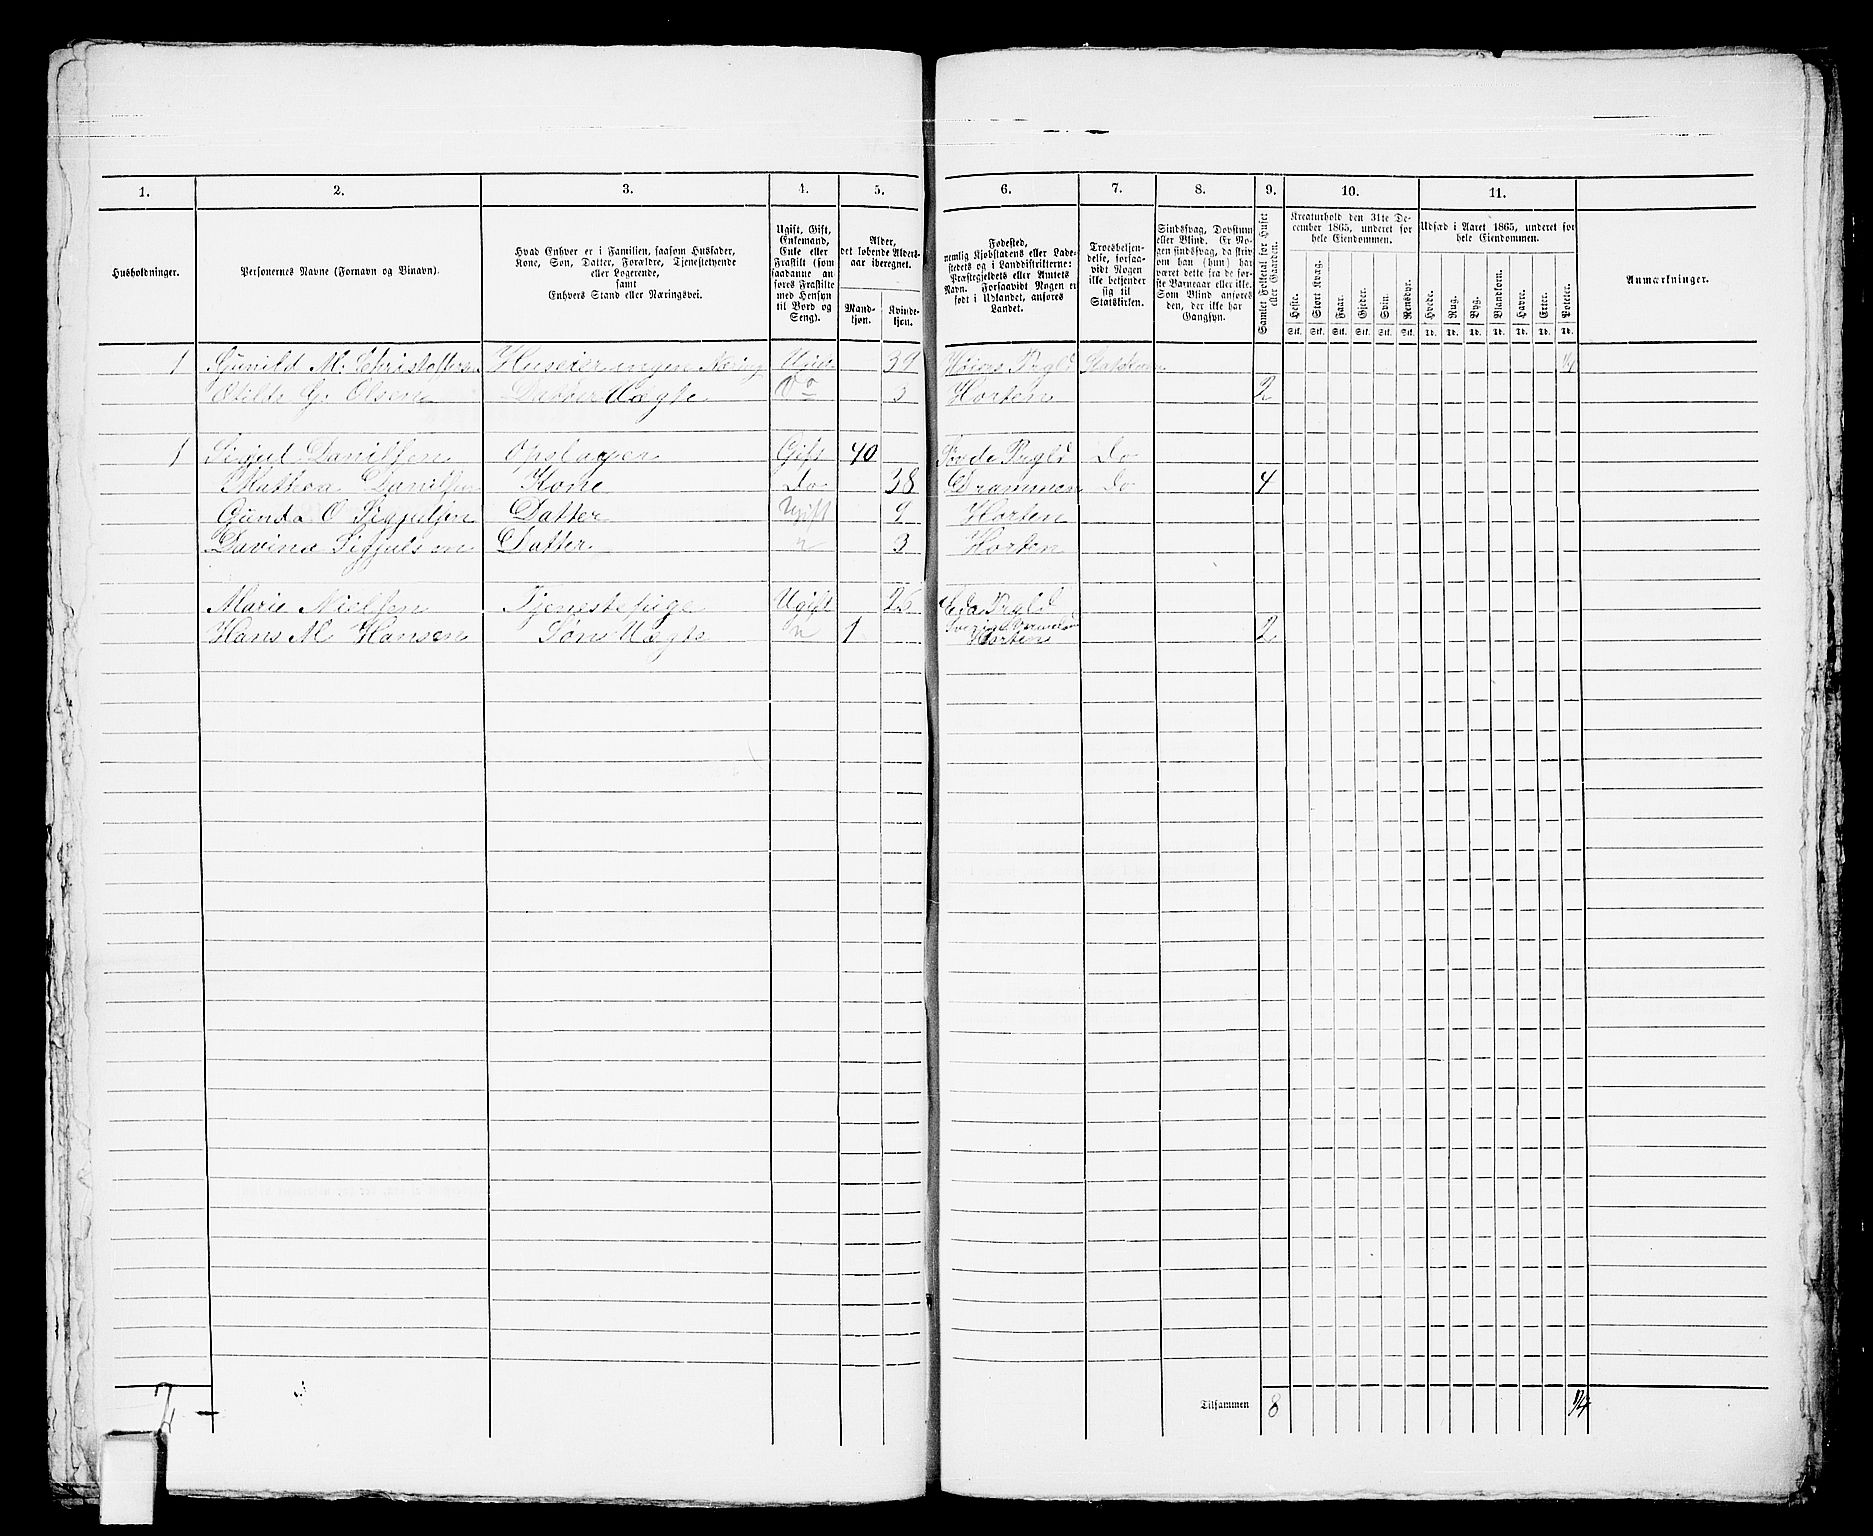 1. 2. 3. 4. 5. 6. 7. 8. 9. 10. 11.
Husholdninger.
Personernes Navne (Fornavn og Binavn).
Hvad Enhver er i Familien, saasom Husfader,
Kone, Søn, Datter, Forældre, Tjenestetyende
eller Logerende,
samt
Enhvers Stand eller Næringsvei.
Ugift, Gift,
Enkemand,
Enke eller
Fraskilt (som
saadanne an-
føres Fraskilte
med Hensyn
til Bord og
Seng).
Alder,
det løbende Alders-
aar iberegnet.
Mand-
kjøn.
Kvinde-
kjøn.
Fødested,
nemlig Kjøbstadens eller Lade-
stedets og i Landdistrikterne:
Præstegjeldets eller Amtets
Navn. Forsaavidt Nogen er
født i Udlandet, anføres
Landet.
Troesbekjen-
delse, forsaa-
vidt Nogen
ikke bekjender
sig til
Statskirken.
Sindssvag, Døvstum
eller Blind. Er No-
gen sindssvag, da skriv
om han (hun) har
været dette fra de før-
ste Barneaar eller ikke.
Som Blind anføres
den, der ikke har
Gangsyn.
Samlet Folketal for Huset
eller Gaarden.
Kreaturhold den 31te De-
cember 1865, underet for
hele Eiendommen.
Heste. Stort Kvæg. Faar. Gjeder. Svin. Rensdyr.
Stk. Stk. Stk. Stk. Stk. Stk.
Udsæd i Aaret 1865, underet for
hele Eiendommen.
Hvede. Rug. Byg. Blandkorn. Havre. Erter. Poteter.
Td. Td. Td. Td. Td. Td. Td.
Anmærkninger.
1 Gunild M. Christoffersen Huseier ingen Næring Ugift 39 Prgld Statskirken 1/4
Otilde G. Olsen Datter Uægte Do 3 Horten 2
1 Danilsen Opslager Gift 40 Prgld Do
Mathea Danilsen Kone Do 38 Drammen Do 4
Gunda O Datter Ugift 9 Horten
Davina Datter " 3 Horten
Marie Nielsen Tjenestepige Ugift 26 Eda Prgld
Hans M Hansen Søn Uægte " 1 Horten 2
2
Tilsammen 8 1/4